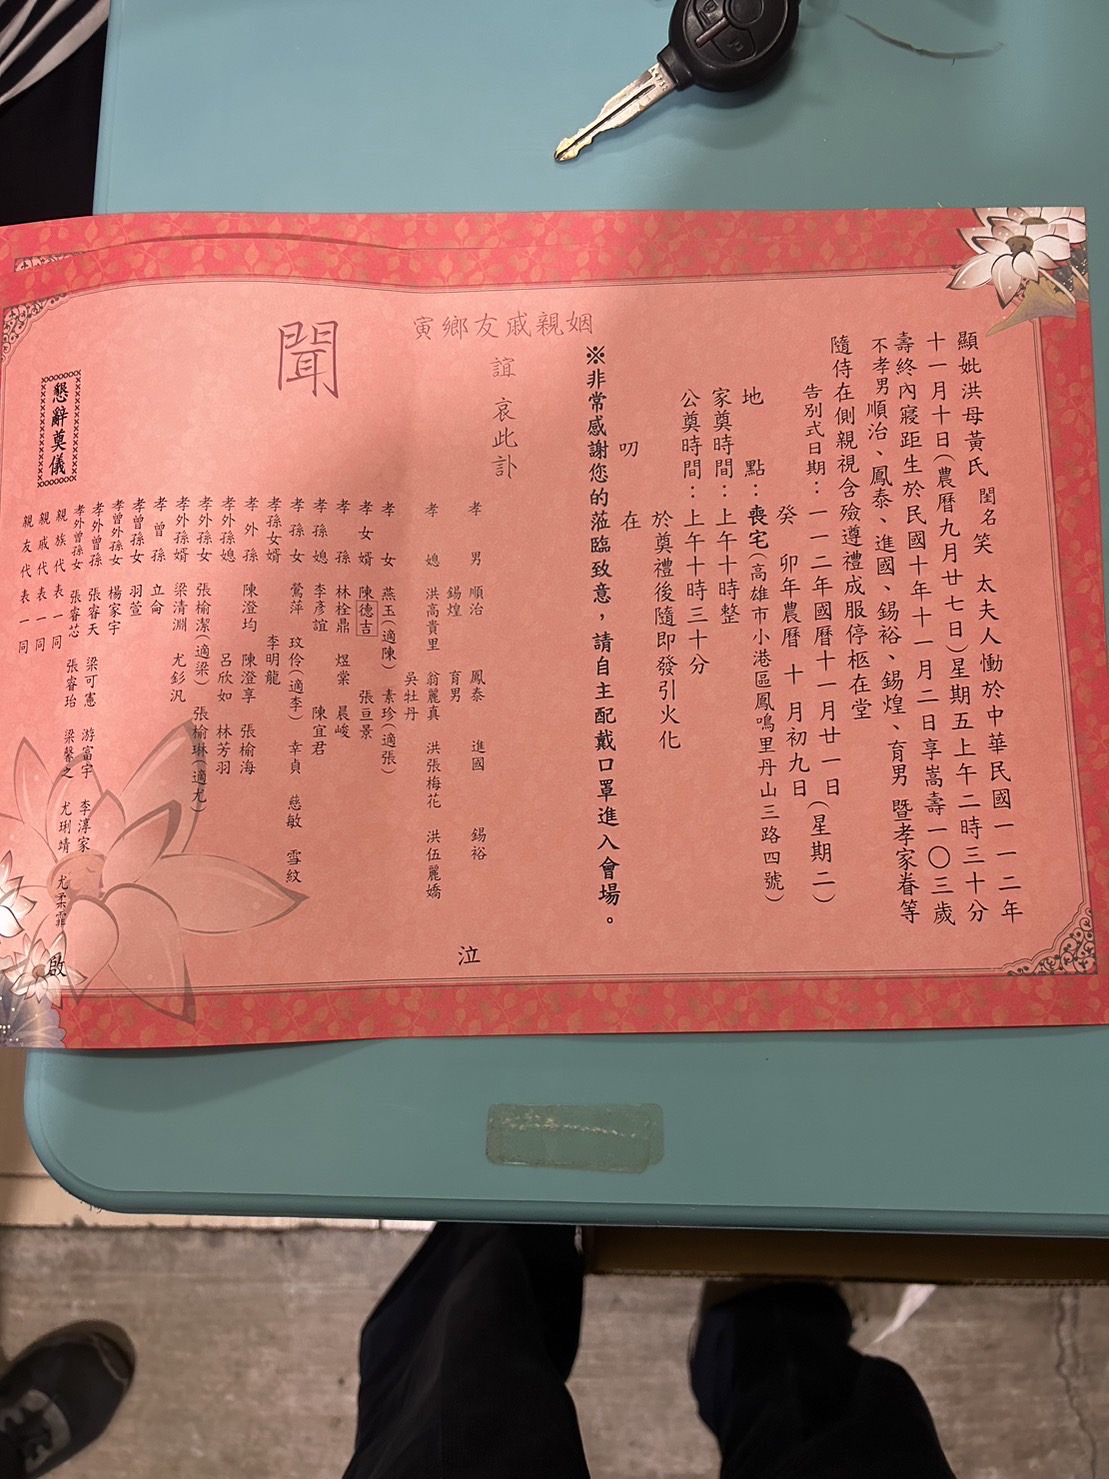 顯妣洪母黃氏 閨名笑 太夫人慟於中華民國一一二年
十一月十日(農曆九月廿七日)星期五上午二時三十分
壽終內寢距生於民國十年十一月二日享嵩壽一〇三歲
不孝男順治、鳳泰、進國、錫裕、錫煌、育男 暨孝家眷等
隨侍在側親視含殮遵禮成服停柩在堂
告別式日期：一一二年國曆十一月廿一日(星期二)
癸卯年農曆 十 月初九日
地 點：喪宅(高雄市小港區鳳鳴里丹山三路四號)
家奠時間：上午十時整
公奠時間：上午十時三十分
於奠禮後隨即發引火化
叨 在
※非常感謝您的蒞臨致意，請自主配戴口罩進入會場。
寅鄉友戚親姻
誼 哀此訃
聞
孝 男 順治 鳳泰 進國 錫裕
錫煌 育男
孝 媳 洪高貴里 翁麗真 洪張梅花 洪伍麗嬌
吳牡丹
孝 女 燕玉(適陳) 素珍(適張)
孝 女 婿 陳德吉 張亘景
孝 孫 林栓鼎 煜棠 晨峻
孝 孫 媳 李彥誼 陳宜君
孝 孫 女 鶯萍 玟伶(適李) 幸貞 慈敏 雪紋
孝孫女婿 李明龍
孝 外 孫 陳澄均 陳澄享 張榆海
孝外孫媳 呂欣如 林芳羽
孝外孫女 張榆潔(適梁) 張榆琳(適尤)
孝外孫婿 梁清淵 尤釤汎
孝 曾 孫 立侖
孝曾孫女 羽萱
孝曾外孫女 楊家宇
孝外曾孫 張睿天 梁可憲 游富宇 李淳家
孝外曾孫女 張睿芯 張睿珆 梁馨之 尤琍靖 尤柔霏
親 族 代 表 一 同
親 戚 代 表 一 同
親 友 代 表 一 同
泣
啟
懇辭奠儀